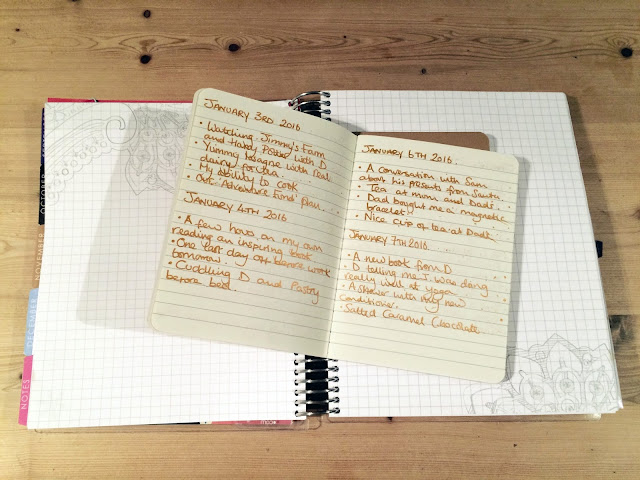 JANUARY 3RD 2016
• Watching Jimmy's Farm
and Harry Potter with D
• Yummy lasagne with real
dairy for tea.
• My ability to cook
• Our 'Adventure Fund' plan.
JANUARY 4TH 2016
• A few hours on my own
reading an inspiring book
• One last day off before work
tomorrow.
• Cuddling D and Pastry
before bed.
JANUARY 6TH 2016.
• A conversation with Sam
about his presents from Santa.
• Tea at mum and Dad's
• Dad bought me a magnetic
bracelet.
• Nice cup of tea at Dad's
JANUARY 7TH 2016.
• A new book from D
• D telling me I was doing
really well at yoga
• A shower with my new
conditioner.
• Salted Caramel Chocolate
OCTOBER
NOVEMBER
DECEMBER
NOTES